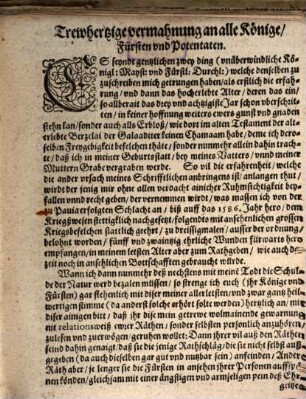 Trewhertzige vermahnung an alle Könige/
Fürsten vnd Potentaten.
ES seyndt gentzlichen zwey ding (vnüberwindliche Kö-
nigl: Mayst: vnd Fürstl: Durchl:) welche denselben zu
zuschreiben mich getrungen haben/ als erstlich die erfah-
rung/ vnd dann das hocherlebte Alter/ deren das ein/
so allberait das drey vnd achtzigiste Jar schon vberschrit-
ten/ in keiner hoffnung weiters ewers gunsts vnd gnaden
stehn kan/ sonder auch als Erbloß/ wie dort im alten Testament der alt-
erlebte Berzelai der Galaaditer seinen Chamaam habe/ deme ich deroselben
Freygebigkeit befelchen thäte/ sonder nunmehr allein dahin trach-
te/ daß ich in meiner Geburtsstatt/ bey meines Vatters/ vnd meiner
Muttern Grabe vergraben werde. So vil die erfahrenheit/ welche
die ander vrsach meines Schriftlichen anbringens ist/ anlangen thut/
wirdt der jenig mir ohne allen verdacht ainicher Ruhmsichtigkeit bey-
fallen vnnd recht geben/ der vernemmen wirdt/ was massen ich von der
zu Pauia erfolgten Schlacht an/ biß auff das 1586. Jahr hero/ dem
Kriegßwesen stettigklich nachgezogen/ folgendts mit ansehenlichen grossen
Kriegßbefelchen stattlich geehrt/ zu dreissigmalen/ ausser der ordnung/
belohnt worden/ fünff vnd zwaintzig ehrliche Wunden fürwarts hero
empfangen/ in meinem letsten Alter aber zum Rathgeben/ wie auch der-
zeit noch in ansehlichen Bottschafften gebraucht würde.
Wann ich dann nunmehr deß nechstens mit meinē Todt die Schulde
der Natur werd bezalen müssen/ so strenge ich euch (ihr Könige vnd
Fürsten) gar stehenlich mit diser meiner aller letsten/ vnd zwar gantz heil-
wertigen stimme (da anderst solche erhört solte werden) hertzlich an/ mit
diser ainigen bitt/ daß ihr dise mein getrewe wolmainende gewarnung
nit relationsweiß ewer Räthen/ sonder selbsten persönlich anzuhören
zulesen vnd zuerwögen/ geruhen wollet: Dann jhrer vil auß den Räthen
seind dahin genaigt/ daß sie die jenige Rathschläg/ die sie nicht selbst auß-
gegeben (da auch dieselben gar gut vnd nutzbar sein) anfeinden/ Andere
Räth aber/ je lenger sie die Fürsten in ansehen ihrer Personen auffzy-
nen könden/ gleichsam mit einer ängstigen vnd armseligen pein deß Ehr-
geitzes